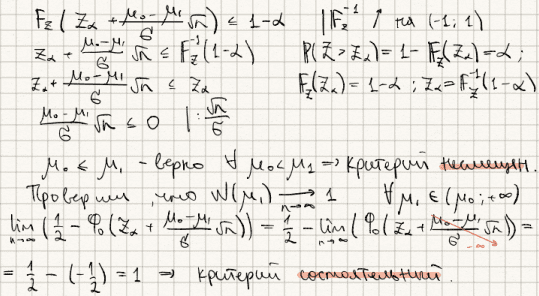 F_Z(z_α + (μ₀-μ₁)/σ √n) ≤ 1-α | F_Z⁻¹ ↑ на (-1; 1)
z_α + (μ₀-μ₁)/σ √n ≤ F_Z⁻¹(1-α) P(Z > z_α) = 1 - F_Z(z_α) = α ;
z_α + (μ₀-μ₁)/σ √n ≤ z_α F_Z(z_α) = 1-α ; z_α = F_Z⁻¹(1-α)
(μ₀-μ₁)/σ √n ≤ 0 | : √n/σ
μ₀ ≤ μ₁ - верно ∀ μ₀ < μ₁ ⇒ критерий несмещен.
Проверим, что W(μ₁) →_{n→∞} 1 ∀ μ₁ ∈ (μ₀; +∞)
lim_{n→∞} (1/2 - Φ₀(z_α + (μ₀-μ₁)/σ √n)) = 1/2 - lim_{n→∞} (Φ₀(z_α + (μ₀-μ₁)/σ √n)) = -∞
= 1/2 - (-1/2) = 1 ⇒ критерий состоятельный.